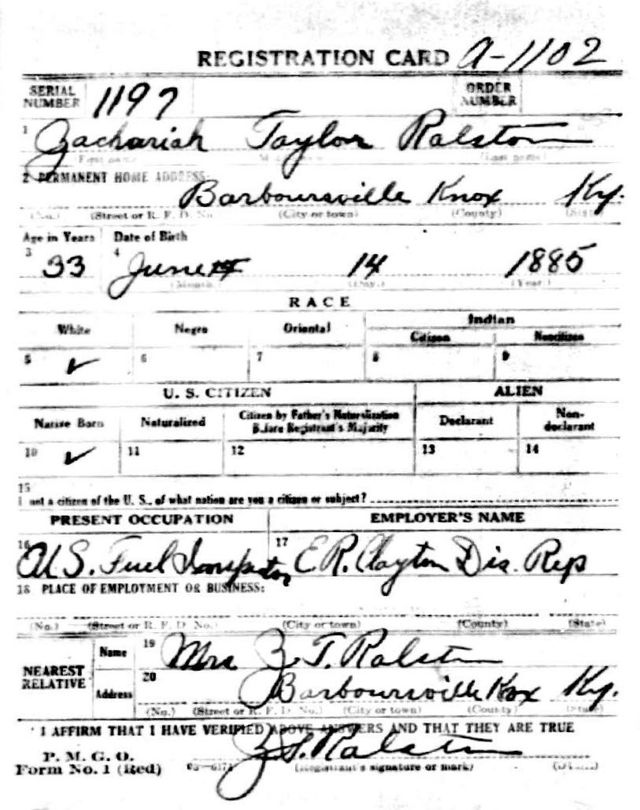 REGISTRATION CARD A-1102
SERIAL NUMBER 1197 ORDER NUMBER
1 Zachariah Taylor Ralston
First name (Last name)
2 PERMANENT HOME ADDRESS:
Barboursville Knox Ky.
(No.) (Street or R. F. D. No. (City or town) (County) (State)
Age in Years Date of Birth
3 33 4 June 14 1885
(Month) (Day) (Year)
RACE
White Negro Oriental Indian
Citizen Noncitizen
5 ✓ 6 7 8 9
U. S. CITIZEN ALIEN
Native Born Naturalized Citizen by Father's Naturalization Before Registrant's Majority Declarant Non-declarant
10 ✓ 11 12 13 14
15
If not a citizen of the U. S., of what nation are you a citizen or subject?
PRESENT OCCUPATION EMPLOYER'S NAME
16 U.S. Fuel Inspector 17 E.R. Clayton Dis. Rep
18 PLACE OF EMPLOYMENT OR BUSINESS:
(No.) (Street or R. F. D. No.) (City or town) (County) (State)
NEAREST RELATIVE Name 19 Mrs Z. T. Ralston
Address 20 Barboursville Knox Ky.
(No.) (Street or R. F. D. No.) (City or town) (County) (State)
I AFFIRM THAT I HAVE VERIFIED ABOVE ANSWERS AND THAT THEY ARE TRUE
P. M. G. O.
Form No. 1 (Red) Z.T. Ralston
(Registrant's signature or mark)